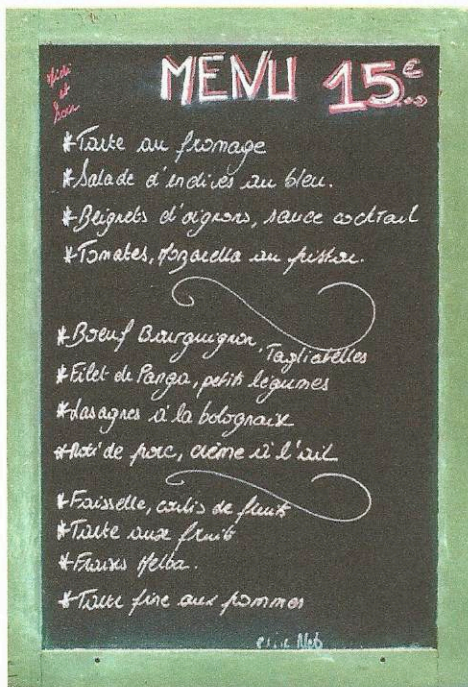 Midi
et
Soir
MENU 15€
*Tarte au fromage
*Salade d'endives au bleu.
*Beignets d'oignons, sauce cocktail
*Tomates, Mozarella au pistou.
*Boeuf Bourguignon, Tagliatelles
*Filet de Panga, petits légumes
*Lasagnes à la bolognaise
*Roti de porc, crème à l'ail
*Faisselle, coulis de fruits
*Tarte aux fruits
*Fraises Melba.
*Tarte fine aux pommes